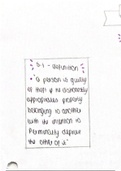 s.1 - definition
• "a person is guilty
of theft if he dishonestly
appropriates property
belonging to another
with the intention of
permanently deprive
the other of it"